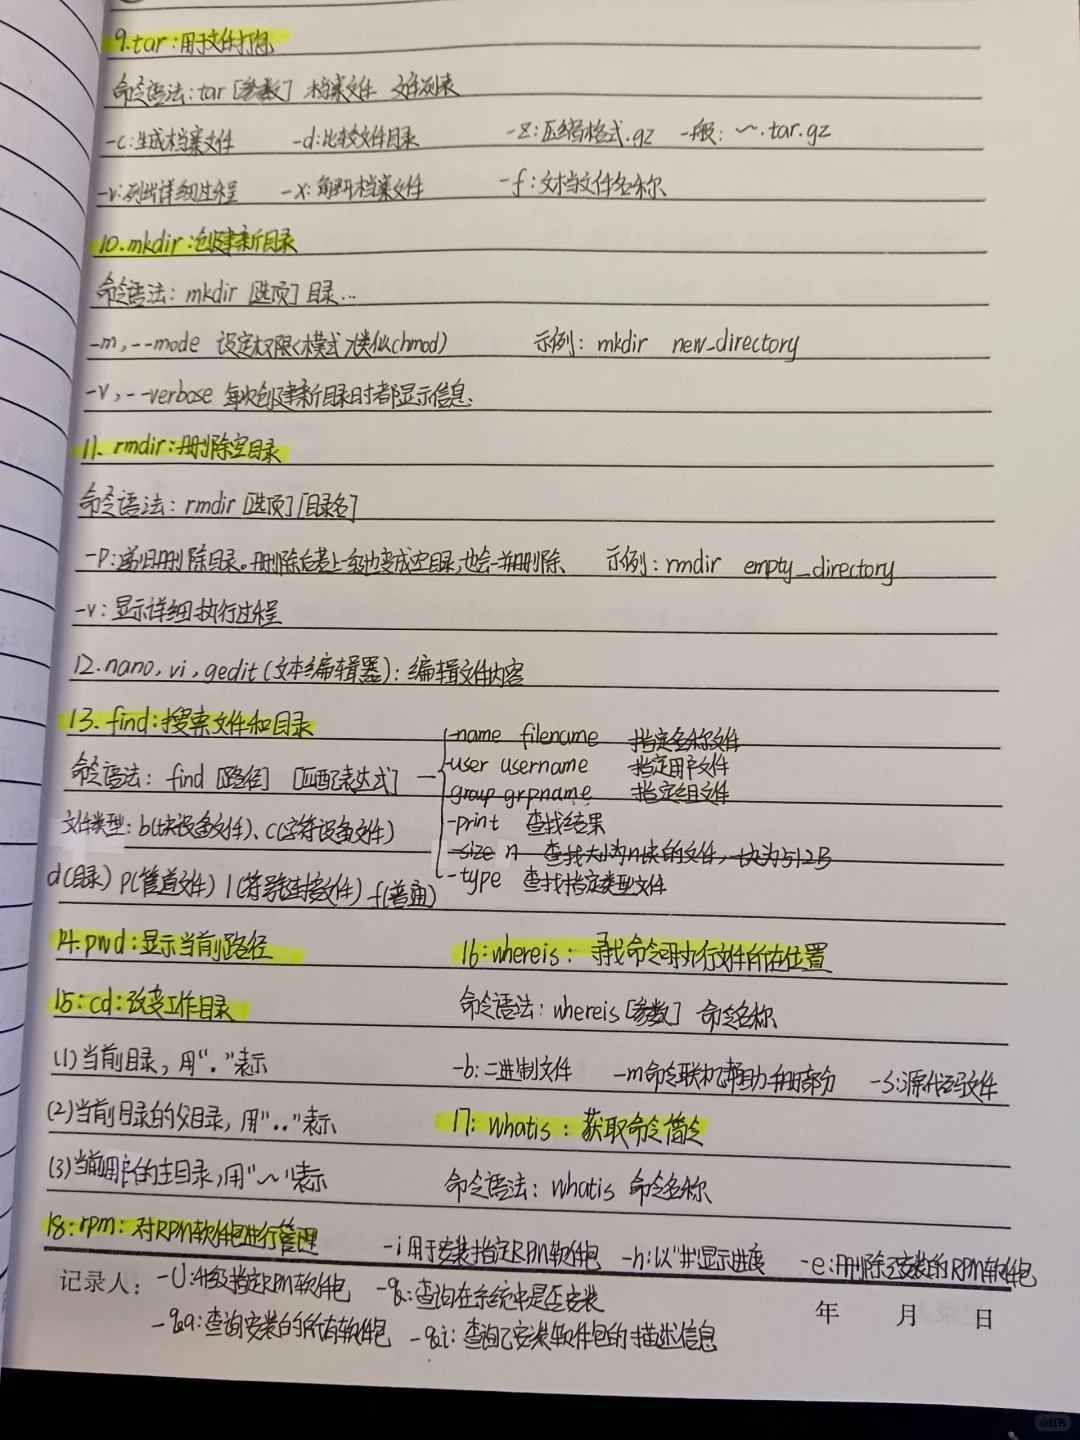 9.tar:用于文件打包
命令语法:tar [参数] 档案文件 文件列表
-c:生成档案文件 -d:比较文件目录 -z:压缩格式.gz 一般:~.tar.gz
-v:列出详细过程 -x:解开档案文件 -f:文档文件名称
10.mkdir:创建新目录
命令语法:mkdir [选项] 目录...
-m,--mode 设定权限<模式>(类似chmod) 示例:mkdir new_directory
-v,--verbose 每次创建新目录时都显示信息
11、rmdir:删除空目录
命令语法:rmdir [选项][目录名]
-p:递归删除目录。删除后若上级也变成空目录,也会一并删除、 示例:rmdir empty_directory
-v:显示详细执行过程
12.nano,vi,gedit(文本编辑器):编辑文件内容
13.find:搜索文件和目录
-name filename 指定名称文件
-user username 指定用户文件
命令语法:find [路径] [匹配表达式]
-group grpname 指定组文件
-print 查找结果
文件类型:b(块设备文件)、c(字符设备文件)
-size n 查找大小为n块的文件,一块为512B
-type 查找指定类型文件
d(目录) p(管道文件) l(符号链接文件) f(普通)
14.pwd:显示当前路径
16:whereis:寻找命令可执行文件所在位置
15:cd:改变工作目录
命令语法:whereis [参数] 命令名称
(1)当前目录,用"."表示
-b:二进制文件 -m命令联机帮助手册部分 -s:源代码文件
(2)当前目录的父目录,用".."表示
17:whatis:获取命令简介
(3)当前用户的主目录,用"~"表示
命令语法:whatis 命令名称
18:rpm:对RPM软件包进行管理
-i用于安装指定RPM软件包 -h:以"#"显示进度 -e:删除已安装的RPM软件包
记录人: -U:升级指定RPM软件包 -q:查询在系统中是否安装
年 月 日
-qa:查询安装的所有软件包 -qi:查询已安装软件包的描述信息
小红书